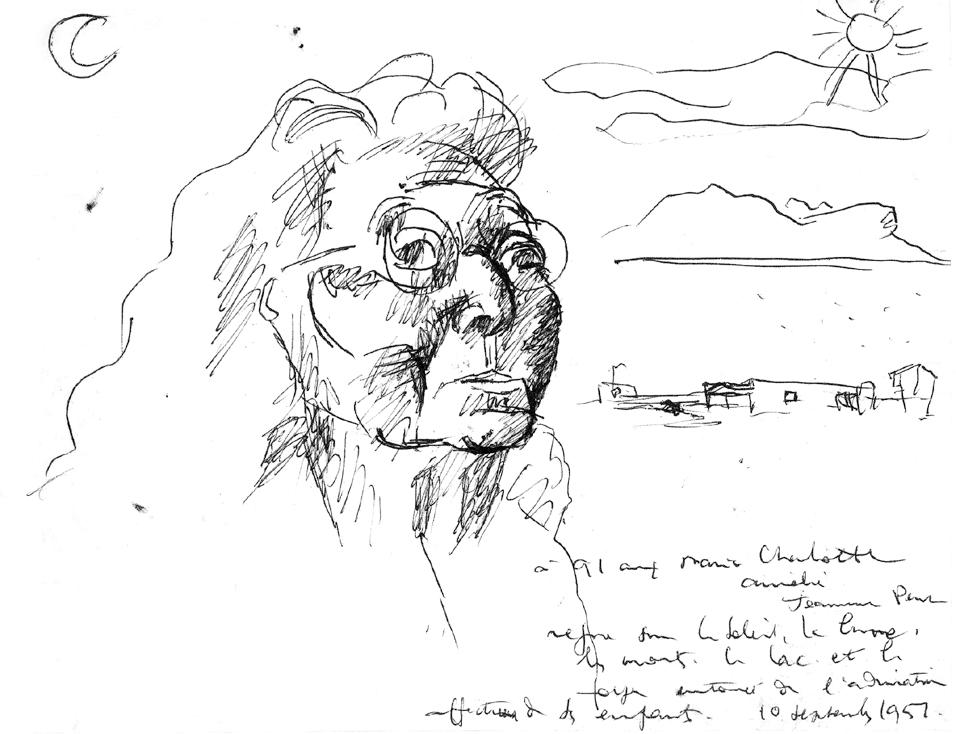 à 91 ans Marie Charlotte
Amélie
Jeanneret Perret
règne sur le soleil, la lune,
les monts, le lac et le
foyer entourée de l'admiration
affectueuse de ses enfants. 10 septembre 1951.